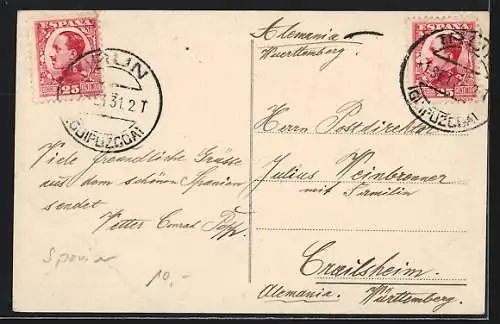 ESPAÑA
25
IRUN
31.2T
(GUIPUZCOA)
Viele freundliche Grüsse
aus dem schönen Spanien
sendet
Vetter Conrad
Spanien
10,-
ESPAÑA
25
IRUN
(GUIPUZCOA)
Alemania
Wuerttemberg.
Herrn Postdirektor
Julius Weinbrenner
mit Familie
Crailsheim.
Alemania. Württemberg.